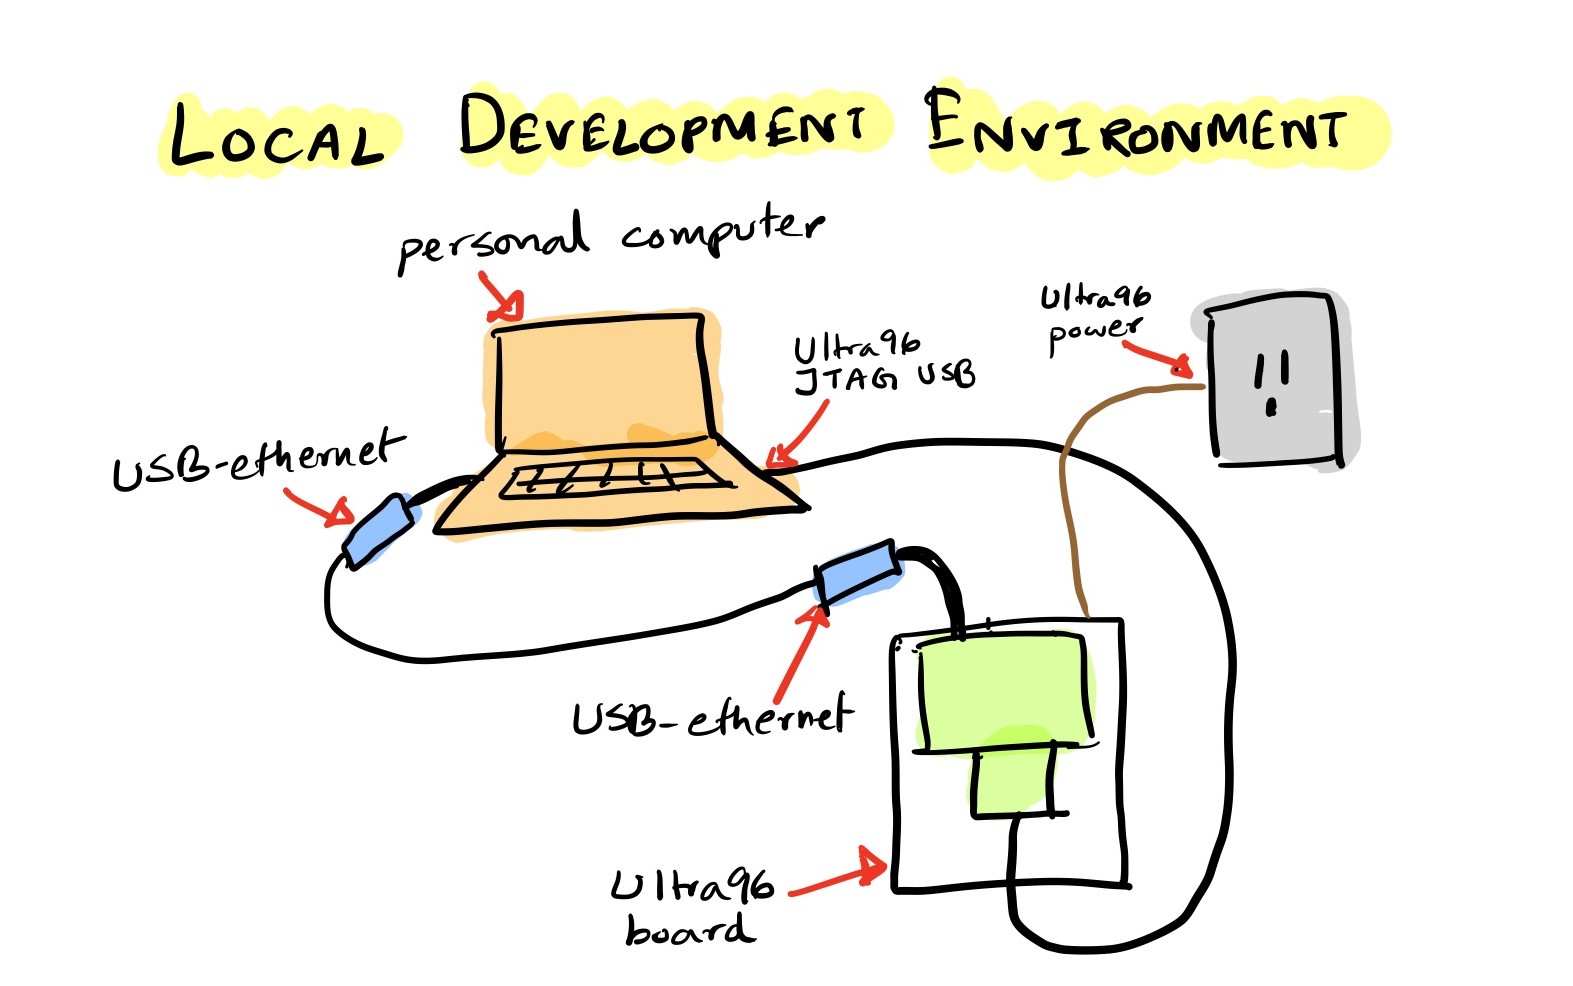 LOCAL DEVELOPMENT ENVIRONMENT
personal computer
Ultra96
power
Ultra96
JTAG USB
USB-ethernet
USB-ethernet
Ultra96
board